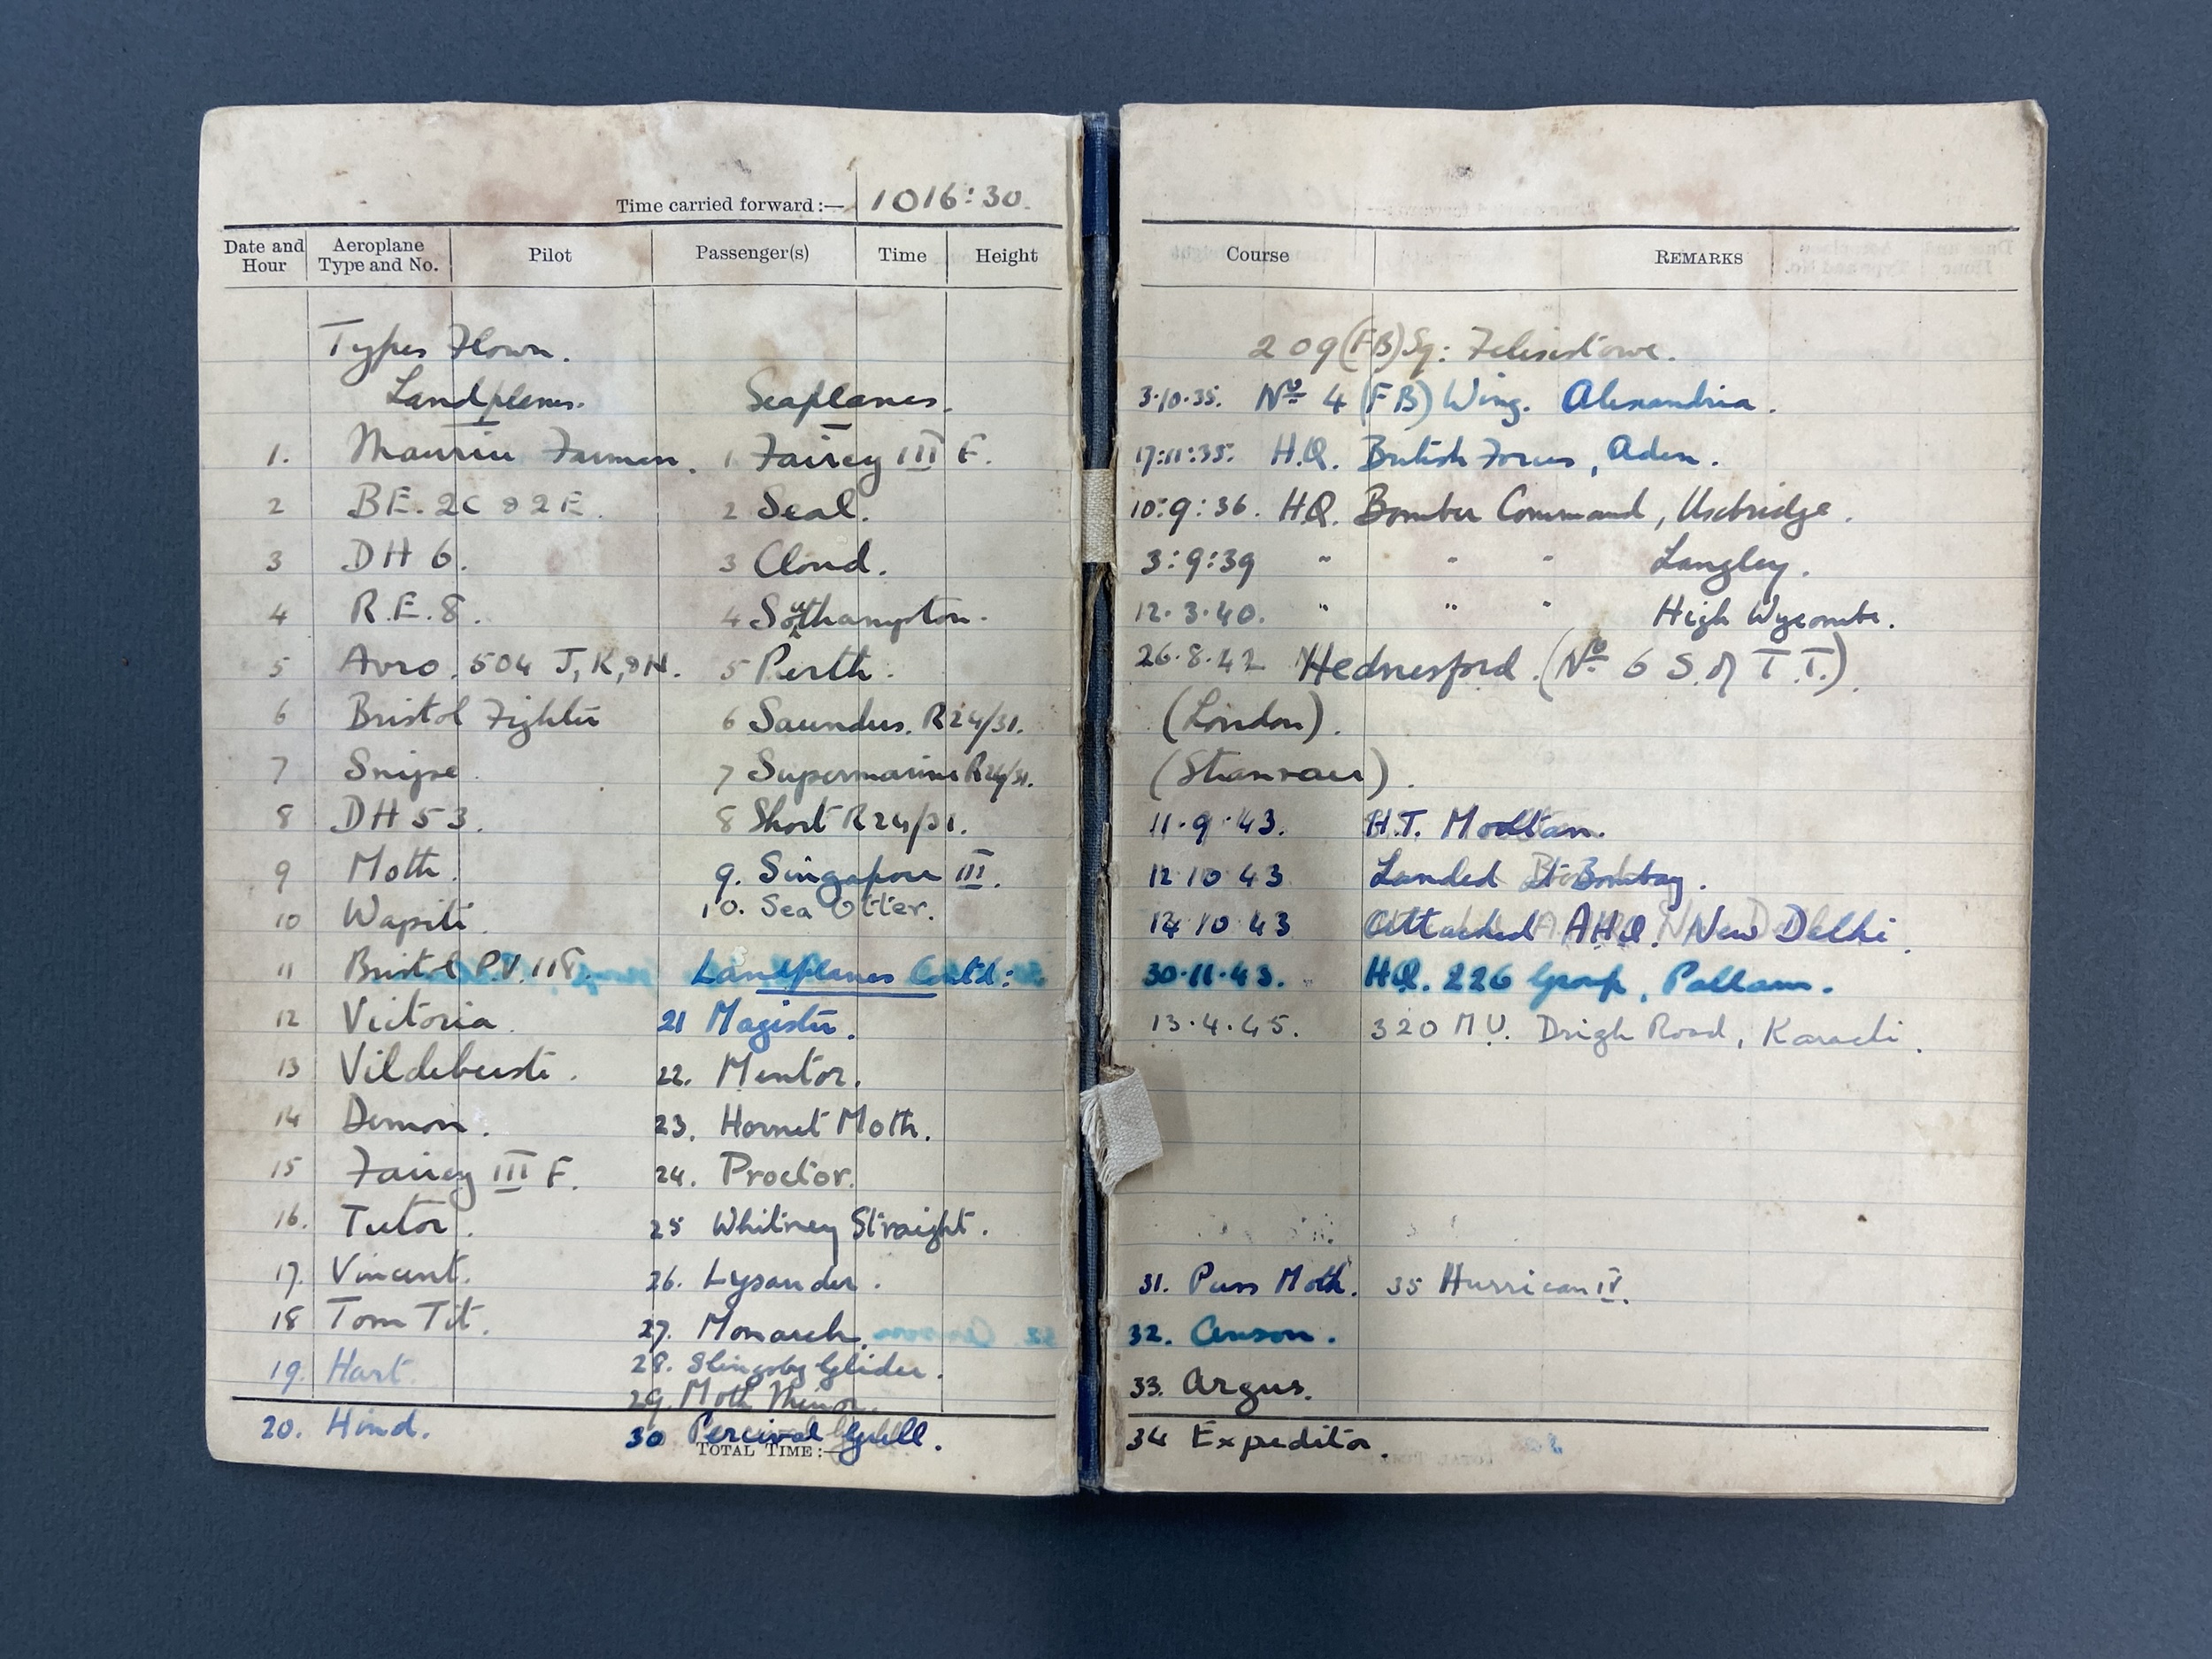 Time carried forward :— 1016:30.
Date and Hour Aeroplane Type and No. Pilot Passenger(s) Time Height
Types Flown.
Landplanes. Seaplanes.
1. Maurice Farman. 1 Fairey III F.
2 BE. 2C & 2E. 2 Seal.
3 DH 6. 3 Cloud.
4 R.E.8. 4 Southampton.
5 Avro. 504 J, K, & N. 5 Perth.
6 Bristol Fighter 6 Saunders. R24/31.
7 Snipe 7 Supermarine R24/31.
8 DH 53. 8 Short R24/31.
9 Moth. 9. Singapore III.
10 Wapiti. 10. Sea Otter.
11 Bristol P.V. 118. Landplanes Contd:
12 Victoria. 21 Magister.
13 Vildebeeste. 22. Mentor.
14 Demon. 23. Hornet Moth.
15 Fairey III F. 24. Proctor.
16. Tutor. 25 Whitney Straight.
17. Vincent. 26. Lysander.
18 Tom Tit. 27. Monarch.
19. Hart. 28. Slingsby Glider.
29. Moth Minor.
20. Hind. 30 Percival Gull.
TOTAL TIME :—
Course REMARKS
209 (FB) Sq: Felixstowe.
3.10.35. No 4 (FB) Wing. Alexandria.
17:11:35. H.Q. British Forces, Aden.
10:9:36. HQ. Bomber Command, Uxbridge.
3:9:39 " " " Langley.
12.3.40. " " " High Wycombe.
26.8.42 Hednesford. (No 6 S. of T.T.).
(London).
(Stranraer).
11.9.43. H.T. Mooltan.
12 10 43 Landed at Bombay.
14 10 43 Attached AHQ. New Delhi.
30.11.43. HQ. 226 Group, Pallam.
13.4.45. 320 MU. Drigh Road, Karachi.
31. Puss Moth. 35 Hurrican IV.
32. Anson.
33. Argus.
34 Expeditor.